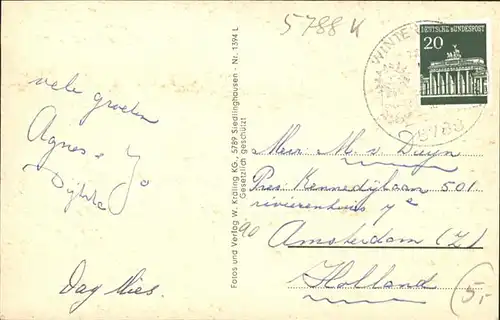 5788 K
WINTER
5788
DEUTSCHE BUNDESPOST
20
vele groeten
Agnes e Jo
Dag Mies.
Fotos und Verlag W. Kräling KG., 5789 Siedlinghausen - Nr. 1394 L
Gesetzlich geschützt
M. v Duyn
Pres. Kennedylaan 501
rivierenhuis 7e
Amsterdam (Z)
Holland
5,-